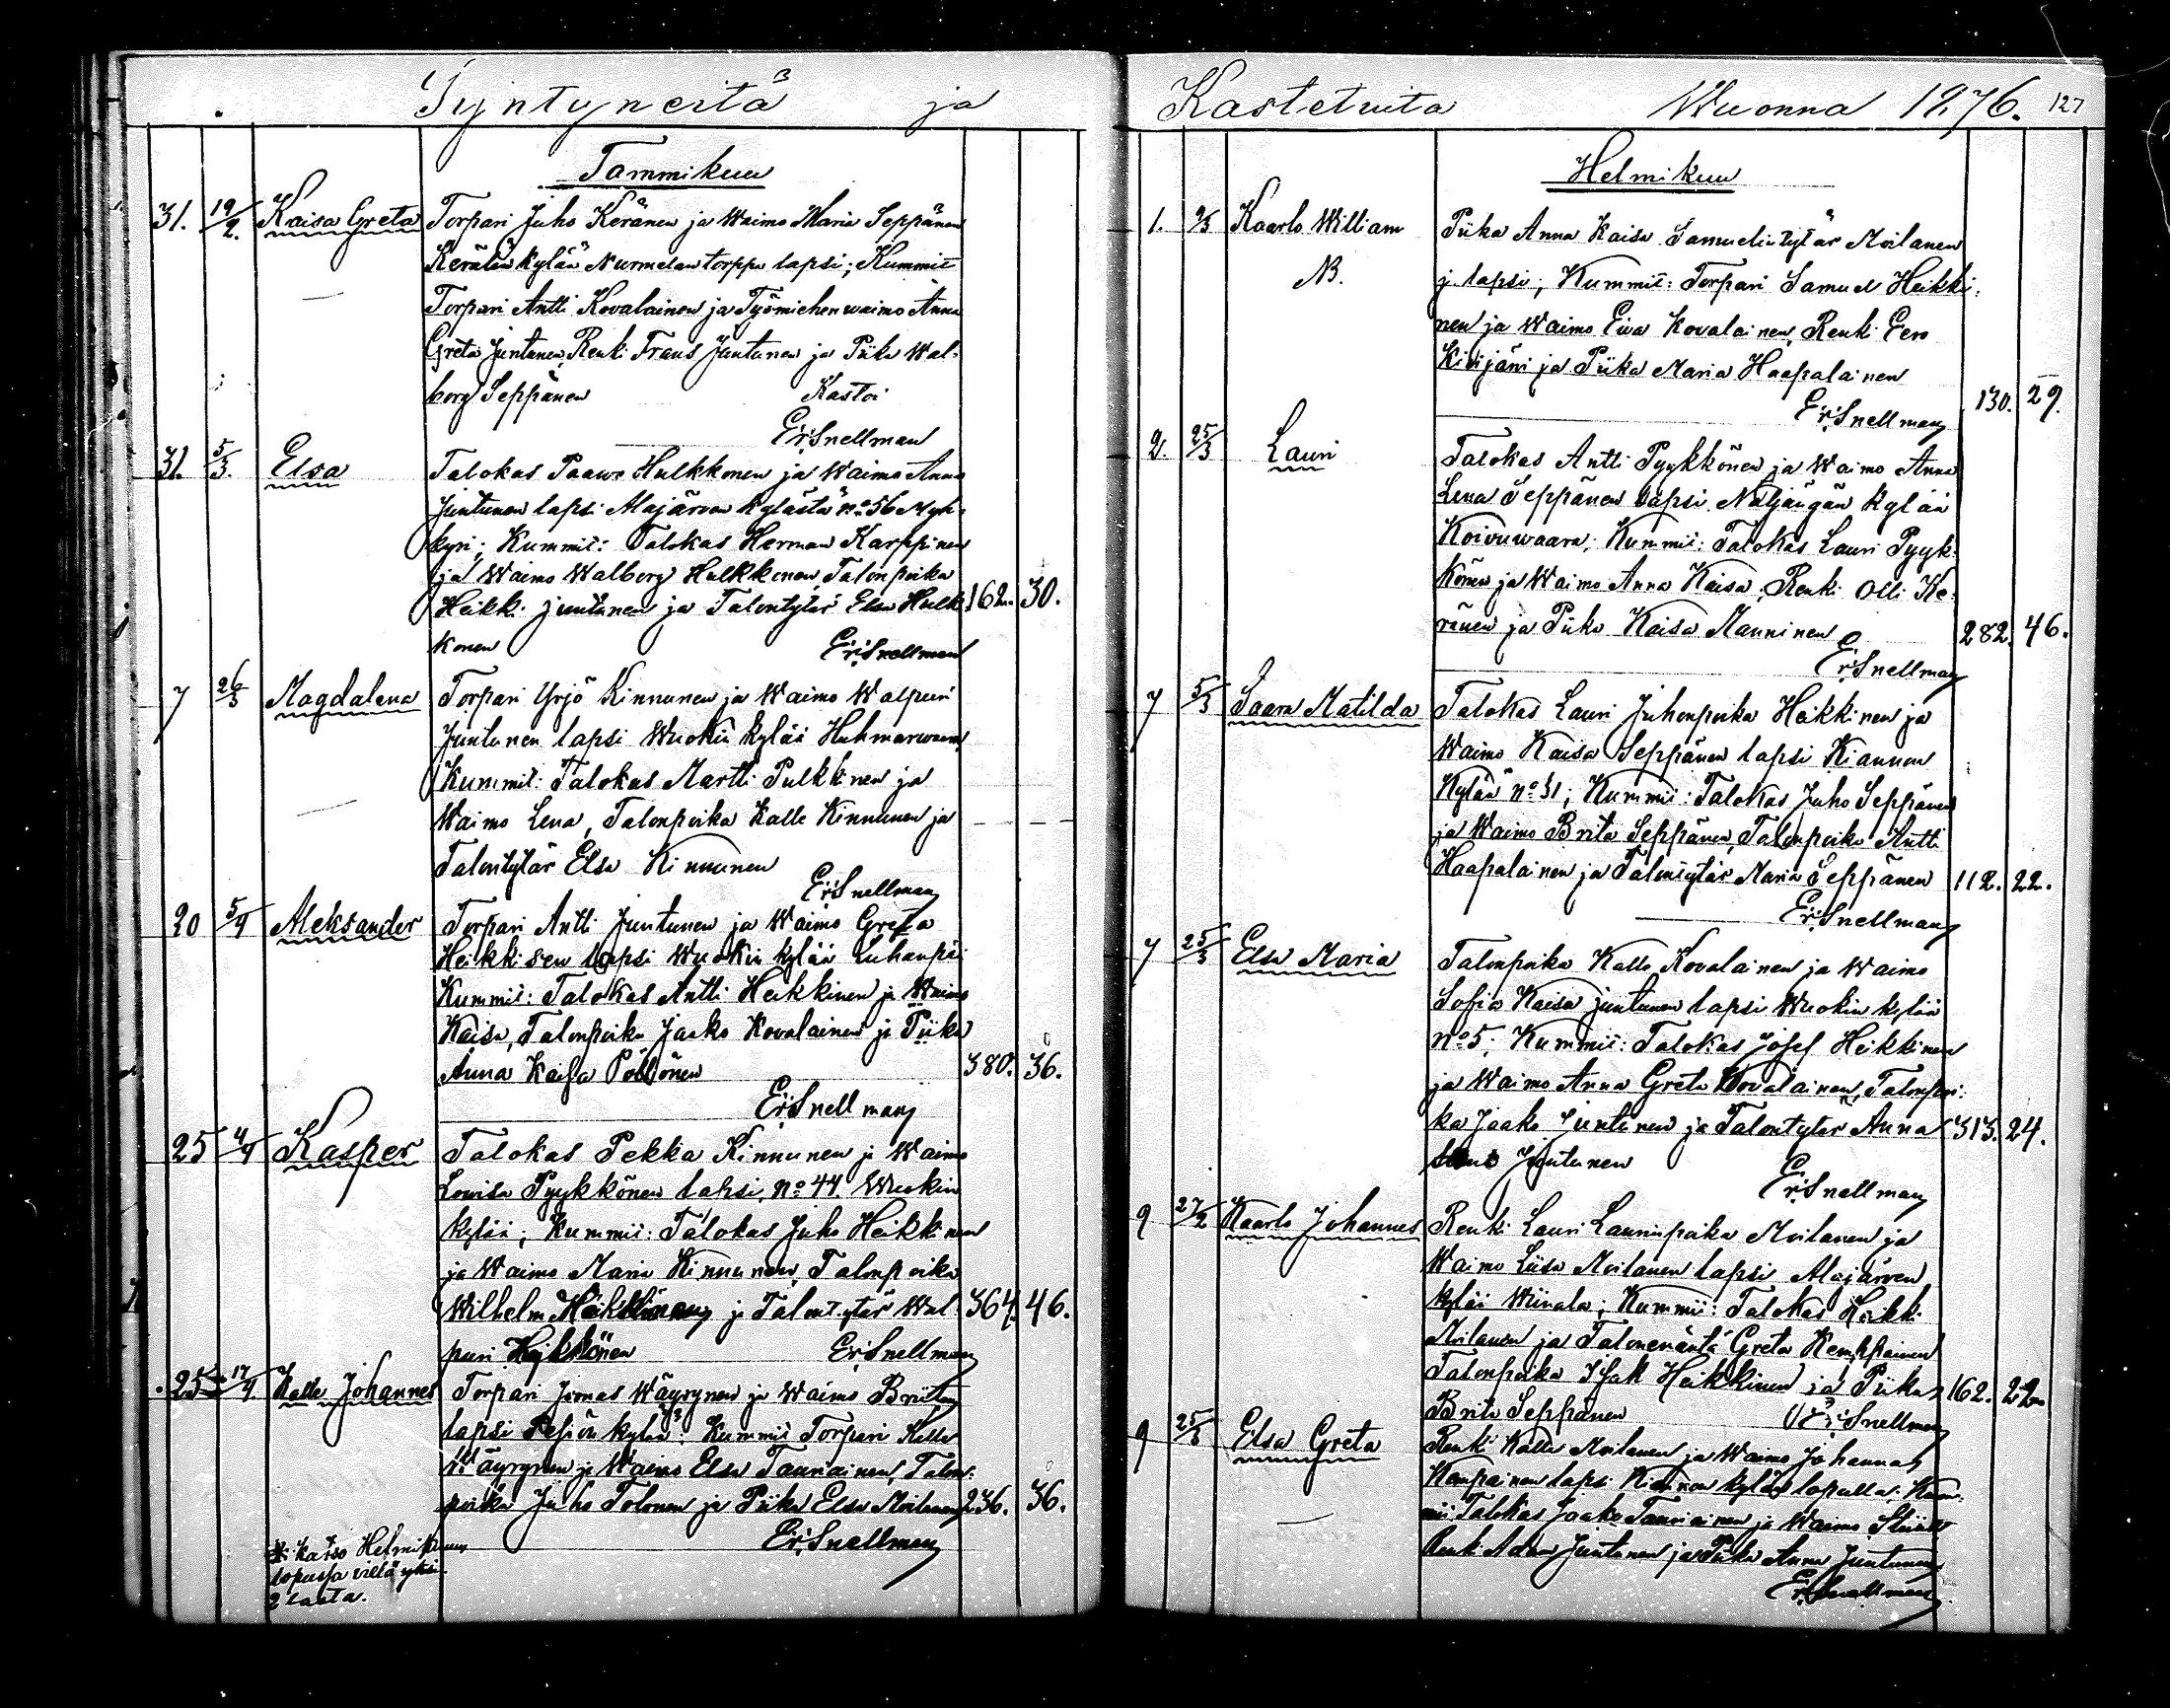 Syntyneitä ja
Tammikuu
31. 19/2. Kaisa Greta Torpari Juho Keränen ja Waimo Maria Seppänen
Kerälän kylän Nurmelan torppa lapsi; Kummit
Torpari Antti Kovalainen ja Työmiehen waimo Anna
Greta Juntunen, Renki Frans Juntunen ja Piika Wal-
borg Seppänen Kastoi
Er: Snellman
31. 5/3. Elsa Talokas Paavo Hulkkonen ja Waimo Anna
Juntunen lapsi Alajärven kylästä No 56 Myh-
kyri; Kummit: Talokas Herman Karppinen
ja Waimo Walborg Hulkkonen Talonpoika
Heikki Juntunen ja Talontytär Elsa Hulk- 162. 30.
konen Er: Snellman
7 26/3 Magdalena Torpari Yrjö Kinnunen ja Waimo Walpuri
Juntunen lapsi Wuokin kylää
Kummit: Talokas Martti Pulkkinen ja
Waimo Lena, Talonpoika Kalle Kinnunen ja
Talontytär Elsa Kinnunen
Er: Snellman
20 5/4 Aleksander Torpari Antti Juntunen ja Waimo Greta
Heikkisen lapsi Wuokin kylää
Kummit: Talokas Antti Heikkinen ja Waimo
Kaisa, Talonpoika Jaako Kovalainen ja Piika
Anna Kaisa Pöllönen 380. 36.
Er: Snellman
25 4/4 Kasper Talokas Pekka Kinnunen ja Waimo
Lowisa Pyykkönen lapsi, No 44 Wuokin
kylää; Kummit: Talokas Juho Heikkinen
ja Waimo Maria Kinnunen, Talonpoika
Wilhelm Heikkinen ja Talontytär Wal- 364. 46.
puri Er: Snellman
25 17/4. Kalle Johannes Torpari Joonas Wäyrynen ja Waimo Briita
lapsi Pesiön kylää; Kummit Torpari Kalle
Wäyrynen ja Waimo Elsa Tauriainen, Talon-
poika Juho Tolonen ja Piika Elsa Moilanen 236. 36.
Er: Snellman
Katso Helmikuun
lopussa vielä yksi
2 lasta.
Kastetuita Wuonna 1876. 127
Helmikuu
1. 9/3 Kaarlo William Piika Anna Kaisa Samuelintytär Moilanen
NB. j. lapsi; Kummit: Torpari Samuel Heikki-
nen ja Waimo Eiva Kovalainen, Renki Eero
Kivijäni ja Piika Maria Haapalainen
Er: Snellman 130. 29.
2. 25/3 Lauri Talokas Antti Pyykkönen ja Waimo Anna
Lena Seppänen lapsi Näljängän kylää
Koivuwaara; Kummit: Talokas Lauri Pyyk-
könen ja Waimo Anna Kaisa, Renki Olli Ke-
ränen ja Piika Kaisa Manninen 282. 46.
Er: Snellman
7 5/3 Saara Matilda Talokas Lauri Juhonpoika Heikkinen ja
Waimo Kaisa Seppänen lapsi Kiannan
Kylää No 31; Kummit: Talokas Juho Seppänen
ja Waimo Brita Seppänen, Talonpoika Antti
Haapalainen ja Talontytär Maria Seppänen 112. 22.
Er: Snellman
7 25/3 Elsa Maria Talonpoika Kalle Kovalainen ja Waimo
Sofia Kaisa Juntunen lapsi Wuokin kylää
No 5; Kummit: Talokas Josef Heikkinen
ja Waimo Anna Greta Kovalainen, Talonpoi-
ka Jaako Juntunen ja Talontytär Anna 313. 24.
Juntunen
Er: Snellman
9 27/2 Kaarlo Johannes Renki Lauri Laurinpoika Moilanen ja
Waimo Liisa Moilanen lapsi Alajärven
kylää Wiinala; Kummit: Talokas Heikki
Moilanen ja Talonemäntä Greta Kemppainen
Talonpoika Isak Heikkinen ja Piika 162. 22.
Brita Seppänen Er: Snellman
9 25/3 Elsa Greta Renki Kalle Moilanen ja Waimo Johanna
Kempainen lapsi Kiannan kylän lopulla; Kum-
mit Talokas Jaako Tauriainen ja Waimo
Renki Adam Juntunen ja Piika Anna Juntunen
Er: Snellman